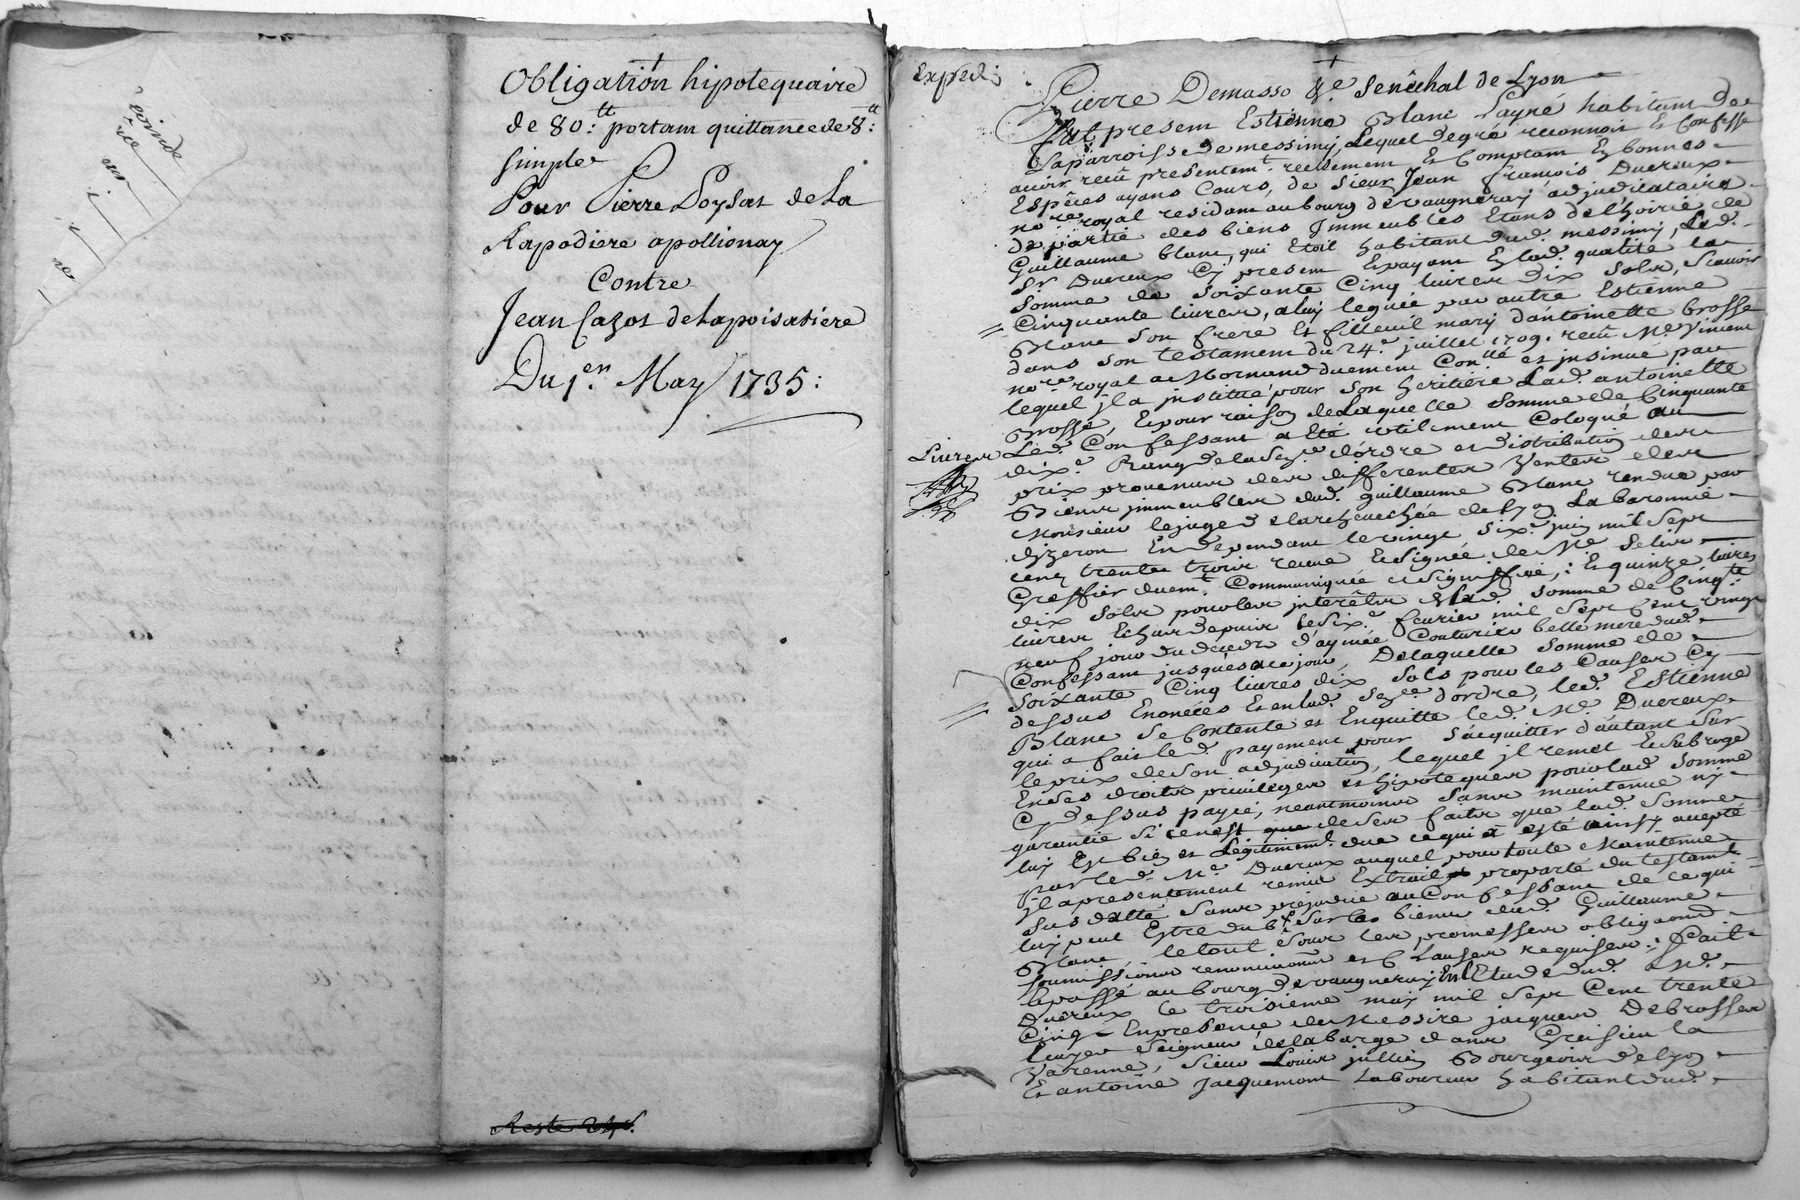 Obligation hipotequaire
de 80.tt portam quittance de 8.tt
simple
Pour Pierre Poysat de La
Rapodiere apollionay
Contre
Jean Cazot de Lapoisatiere
Du 1.er May 1735:
Reste
Exped:
Pierre Demasso &c. Senêchal de Lyon
Fut present Estienne Blanc Layné habitant de
Laparroisse de messimy, Lequel degré reconnoit Et Confesse
avoir reçû presentem.t reellement Et Comptam En bonnes
Espêces ayans Cours, de Sieur Jean François Duereux
no.re royal residam au bourg de vaugneray adjudicataire
de partie des biens Immeubles Etans de l'hoirie de
Guillaume blanc, qui Etoit habitant dud. messimy, Led.
Sr Duereux Cy present Epayant En lad. qualité la
Somme de Soixante Cinq livres dix Sols, Scavoir
Cinquante livres, aluy leguée par autre Estienne
Blanc Son frere Et filleuil mary d'antoinette brosse
dans son testament du 24.e juillet 1709. reçû Me. Vincent
no.re royal a Mornand duement Con.llé et insinué par
lequel jl a institué pour Son heritiere Lad. antoinette
Brosse, Epour raison de Laquelle Somme de Cinquante
Livres Led. Confessant a Eté utilement Coloqué au
dix.e Rang de la Se.ce d'ordre et distribution des
prix provenus des differentes Ventes des
Biens immeubles dud. Guillaume Blanc rendue par
Monsieur le juge de larchevechée de Lyon La baronnie
dyzeron En dependant le vingt Six.e juin mil Sept
cent trente trois recue Et Signée de Me
Greffier duem.t Communiquée et Signiffiée; Et quinze livres
dix Sols pour les interêts de lad. Somme de Cinq.te
livres Echus depuis le Six.e fevrier mil Sept Cent vingt
neuf jour du decedz d'aymée Couturier belle mere dud.
Confessam jusques ace jour, De laquelle Somme de
Soixante Cinq livres dix Sols pour les Causes Cy
dessus Enoncées Et en lad. Se.ce d'ordre, led. Estienne
Blanc Se Contente et Enquitte led. Me. Duereux
qui a fait led. payement pour S'acquitter d'autant Sur
le prix de Son adjudication, lequel jl remet Et Subroge
En Ses droits privileges et hipoteques pour lad. Somme
Cy dessus payée, neantmoins Sans maintenue ny
garantie Si cenest que de Ses faits que lad. Somme
luy Est bien et Legitimem.t due ce qui a esté ainsy accepté
par led. Me. Duereux auquel pour toute Maintenue
jl a presentement remis Extrait proparte du testam.t
Sus datté Sans prejudice au Confessant de ce qui
luy peut Estre du Sur les biens dud. Guillaume
Blanc, le tout Sous les promesses obligaons
Soumissions renonciaons et Clauses requises: Fait
Epassé au bourg de vaugneray En l'Etude dud. Me.
Duereux le troisieme may mil Sept Cent trente
Cinq Enpresence de Messire jacques Debrosses
Ecuyer Seigneur de la barge dans
Varenne, Sieur Louis jullien Bourgeois de Lyon
Et antoine Jacquemont Laboureur habitant dud.